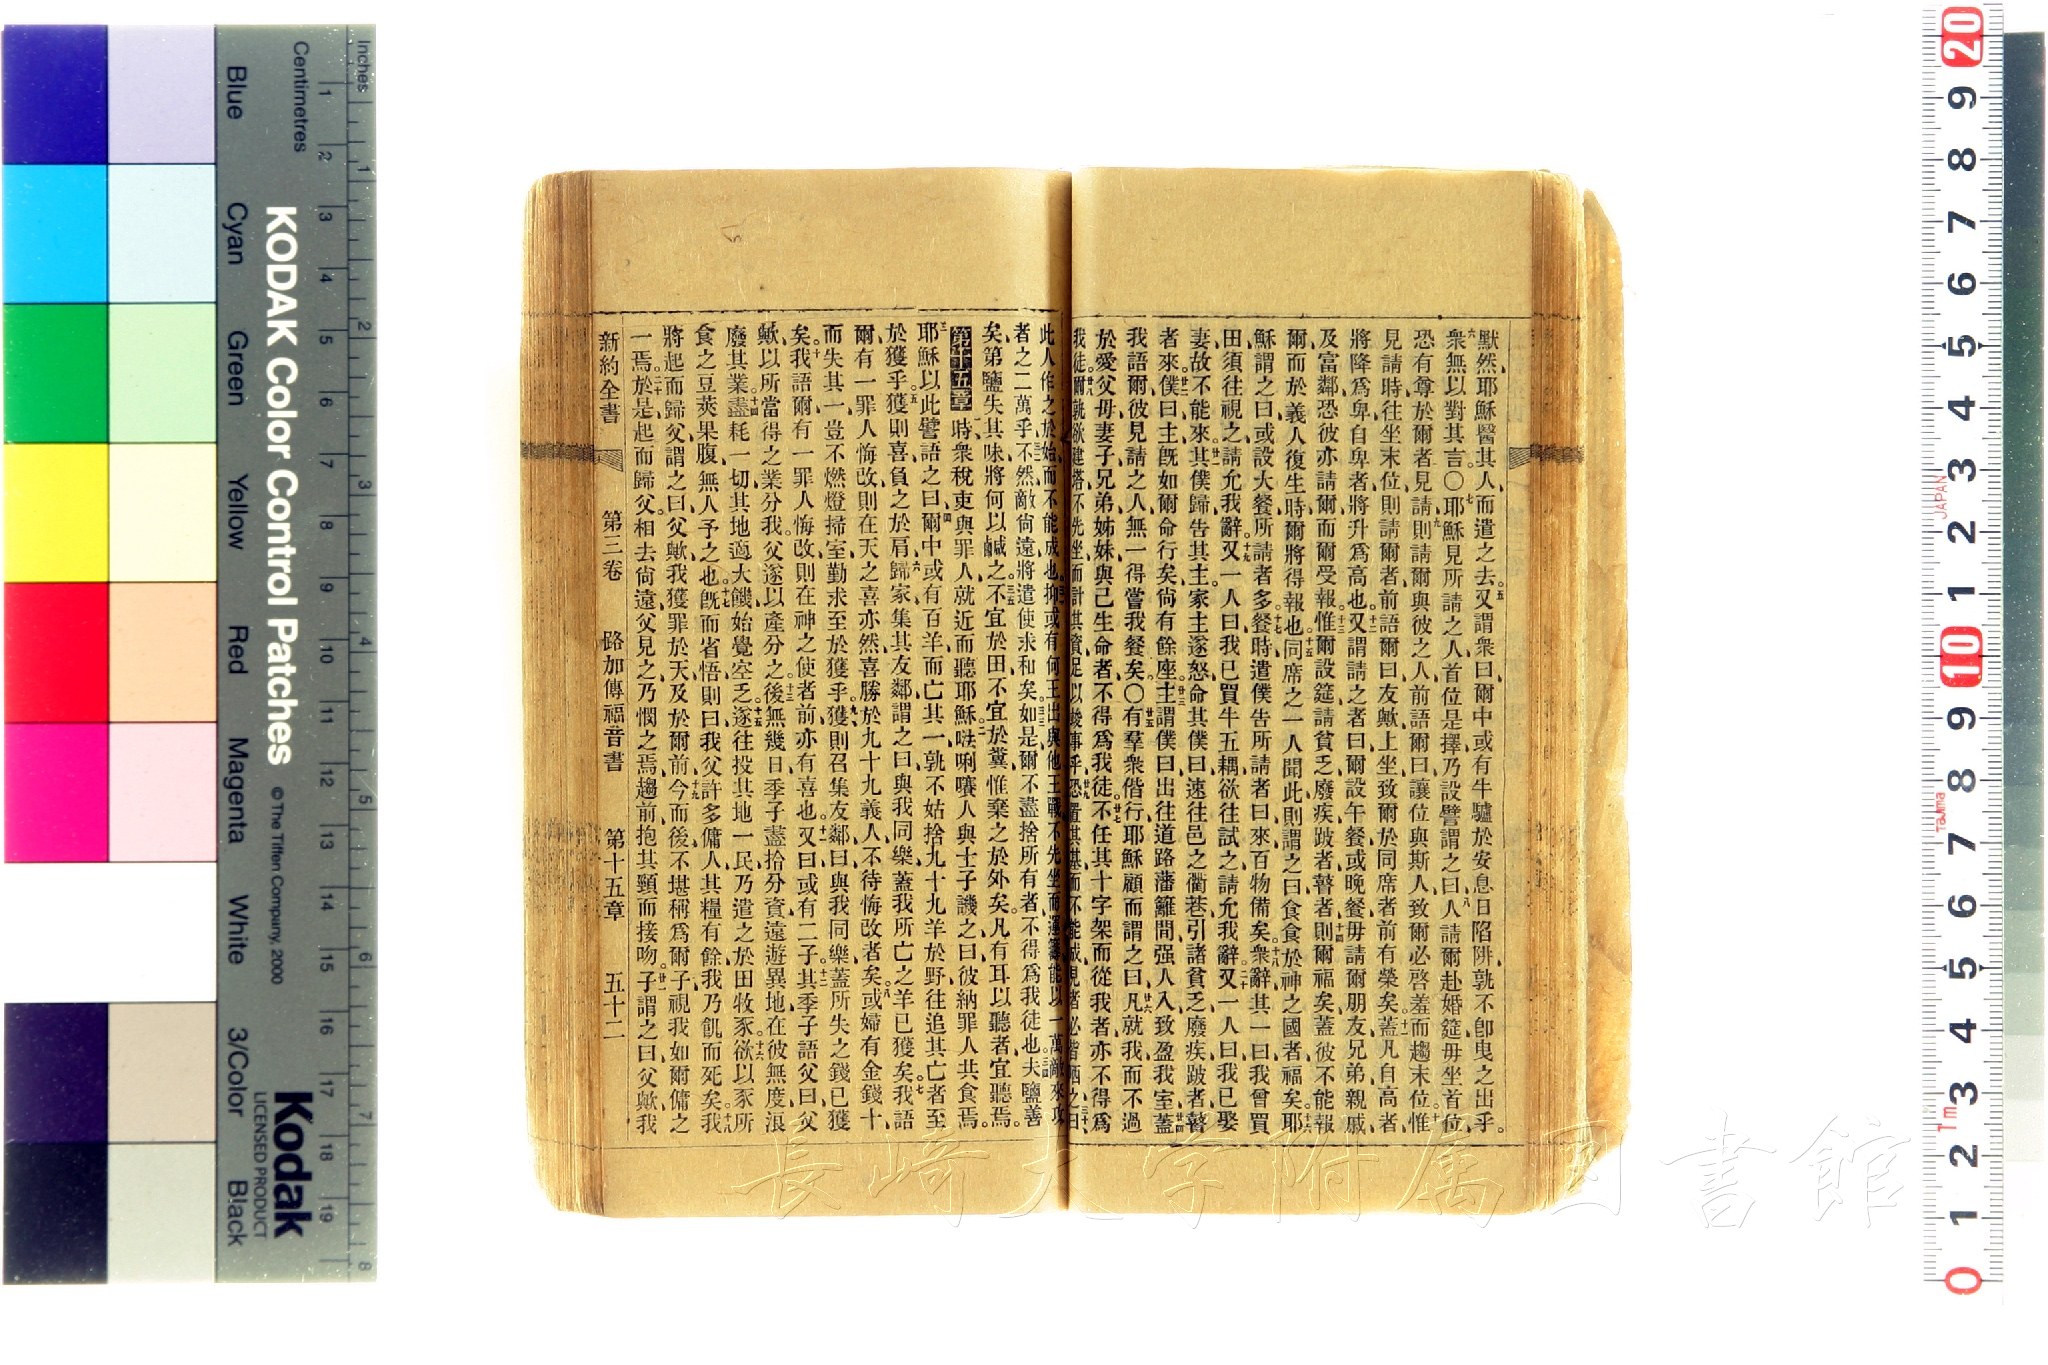 默然、耶穌醫其人而遣之去。五又謂衆曰、爾中或有牛驢、於安息日陷阱、孰不卽曳之出乎。
六衆無以對其言。〇七耶穌見所請之人、首位是擇、乃設譬謂之曰、八人請爾赴婚筵、毋坐首位、
恐有尊於爾者見請、九則請爾與彼之人、前語爾曰、讓位與斯人、致爾必啓羞、而趨末位、十惟
見請時、往坐末位、則請爾者、前語爾曰、友歟、上坐、致爾於同席者前有榮矣。十一蓋凡自高者、
將降爲卑、自卑者、將升爲高也。十二又謂請之者曰、爾設午餐或晚餐、毋請爾朋友兄弟親戚、
及富鄰、恐彼亦請爾、而爾受報、十三惟爾設筵、請貧乏廢疾跛者瞽者、十四則爾福矣、蓋彼不能報
爾、而於義人復生時、爾將得報也。十五同席之一人聞此、則謂之曰、食食於神之國者福矣。十六耶
穌謂之曰、或設大餐、所請者多、十七餐時、遣僕告所請者曰、來、百物備矣、十八衆辭、其一曰、我曾買
田、須往視之、請允我辭、十九又一人曰、我已買牛五耦、欲往試之、請允我辭、二十又一人曰、我已娶
妻、故不能來。廿一其僕歸告其主、家主遂怒、命其僕曰、速往邑之衢巷、引諸貧乏廢疾跛者瞽
者來。廿二僕曰、主、旣如爾命行矣、尙有餘座。廿三主謂僕曰、出往道路藩籬間、强人入、致盈我室、廿四蓋
我語爾、彼見請之人、無一得嘗我餐矣。〇廿五有羣衆偕行、耶穌顧而謂之曰、廿六凡就我而不過
於愛父母妻子兄弟姊妹、與己生命者、不得爲我徒、廿七不任其十字架而從我者、亦不得爲
我徒。廿八爾孰欲建塔、不先坐而計其資、足以竣事乎、廿九恐置其基而不能成、見者必皆哂之曰、三十
此人作之於始、而不能成也。三一抑或有何王、出與他王戰、不先坐而運籌、能以一萬、敵來攻
者之二萬乎、三二不然、敵尙遠、將遣使求和矣。三三如是、爾不盡捨所有者、不得爲我徒也。三四夫鹽善
矣、第鹽失其味、將何以鹹之、三五不宜於田、不宜於糞、惟棄之於外矣、凡有耳以聽者、宜聽焉。
第十五章 一時、衆稅吏與罪人、就近而聽耶穌、二𠵽唎㘔人與士子譏之曰、彼納罪人共食焉。
三耶穌以此譬語之曰、四爾中或有百羊而亡其一、孰不姑捨九十九羊於野、往追其亡者、至
於獲乎、五獲則喜負之於肩、六歸家、集其友鄰、謂之曰、與我同樂、蓋我所亡之羊已獲矣。七我語
爾、有一罪人悔改、則在天之喜亦然、喜勝於九十九義人、不待悔改者矣。八或婦有金錢十、
而失其一、豈不燃燈掃室、勤求至於獲乎、九獲則召集友鄰曰、與我同樂、蓋所失之錢已獲
矣。十我語爾、有一罪人悔改、則在神之使者前、亦有喜也。十一又曰、或有二子、十二其季子語父曰、父
歟、以所當得之業分我、父遂以產分之。十三後無幾日、季子盡拾分資、遠遊異地、在彼無度浪
廢其業、十四盡耗一切、其地適大饑、始覺空乏、十五遂往投其地一民、乃遣之於田牧豕、十六欲以豕所
食之豆莢果腹、無人予之也。十七旣而省悟則曰、我父許多傭人、其糧有餘、我乃飢而死矣、十八我
將起而歸父、謂之曰、父歟、我獲罪於天、及於爾前、十九今而後不堪稱爲爾子、視我如爾傭之
一焉。二十於是起而歸父、相去尙遠、父見之、乃憫之焉、趨前抱其頸而接吻、廿一子謂之曰、父歟、我
新約全書 第三卷 路加傳福音書 第十五章 五十二
Inches
Centimetres
Blue
Cyan
Green
Yellow
Red
Magenta
White
3/Color
Black
KODAK Color Control Patches
© The Tiffen Company, 2000
Kodak
LICENSED PRODUCT
JAPAN
Tajima
Tm
長崎大学附属図書館